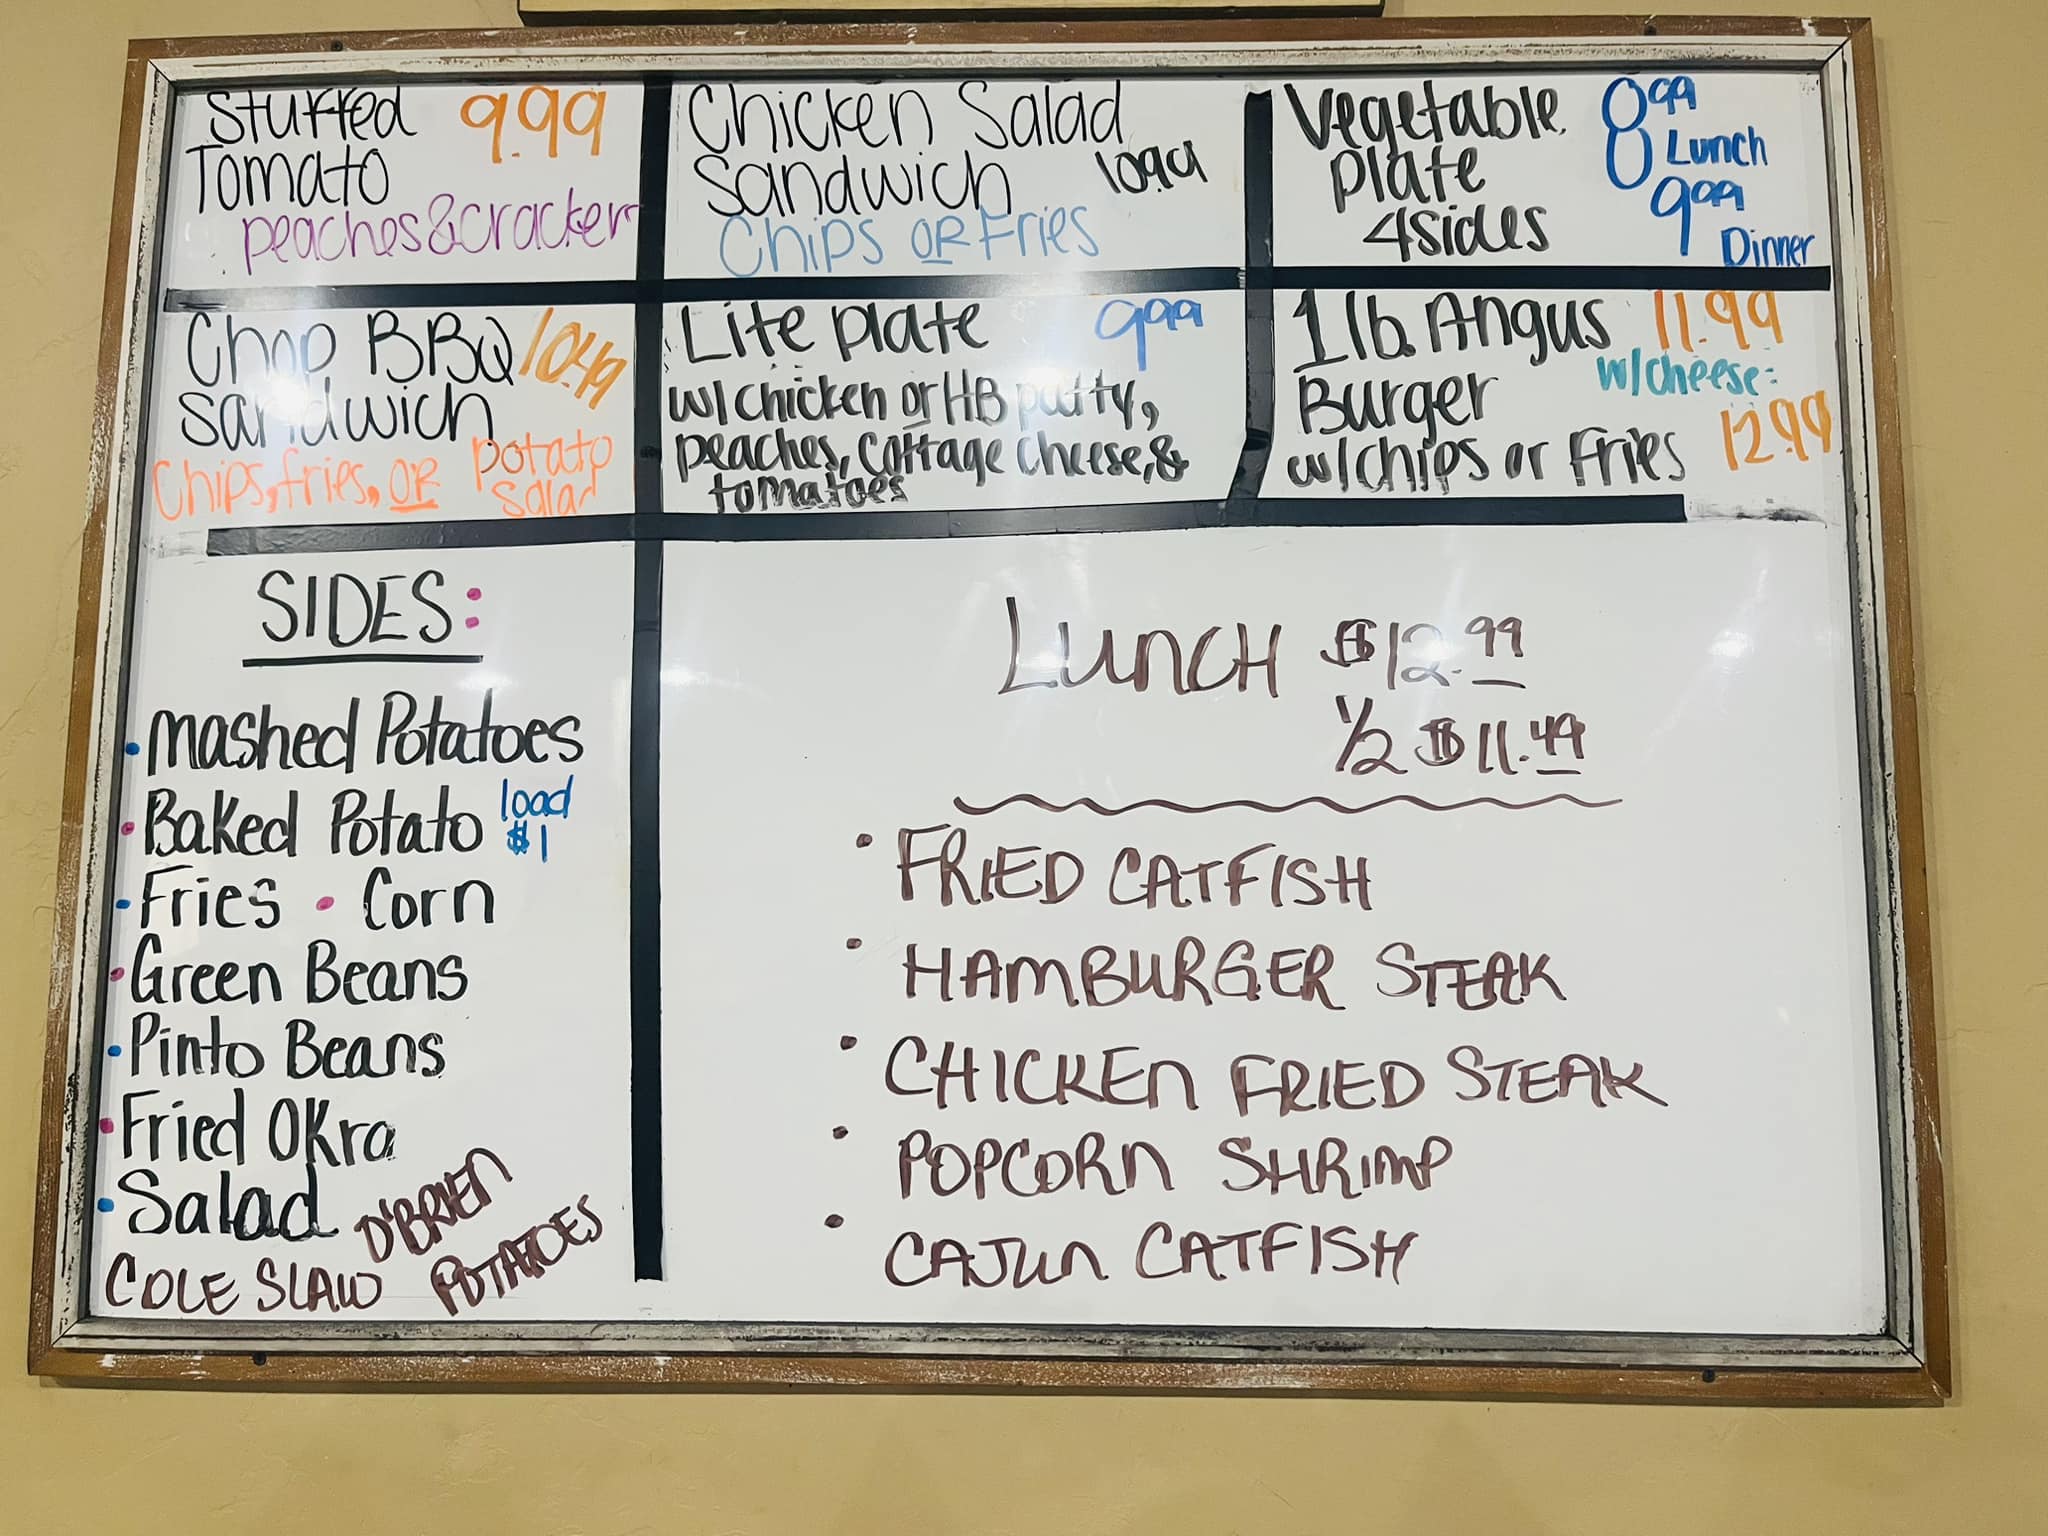 Stuffed 9.99
Tomato
peaches & cracker
Chicken Salad
Sandwich 10.99
Chips OR Fries
Vegetable 8.99
plate Lunch
4 sides 9.99
Dinner
Chop BBQ 10.49
Sandwich
Chips, fries, OR potato
salad
Lite plate 9.99
w/ chicken or HB patty,
peaches, cottage cheese, &
tomatoes
1 lb. Angus 11.99
Burger w/cheese:
w/chips or Fries 12.99
SIDES:
• Mashed Potatoes
• Baked Potato load $1
• Fries • Corn
• Green Beans
• Pinto Beans
• Fried Okra
• Salad
O'BRIEN
POTATOES
COLE SLAW
LUNCH $12.99
1/2 $11.49
• FRIED CATFISH
• HAMBURGER STEAK
• CHICKEN FRIED STEAK
• POPCORN SHRIMP
• CAJUN CATFISH